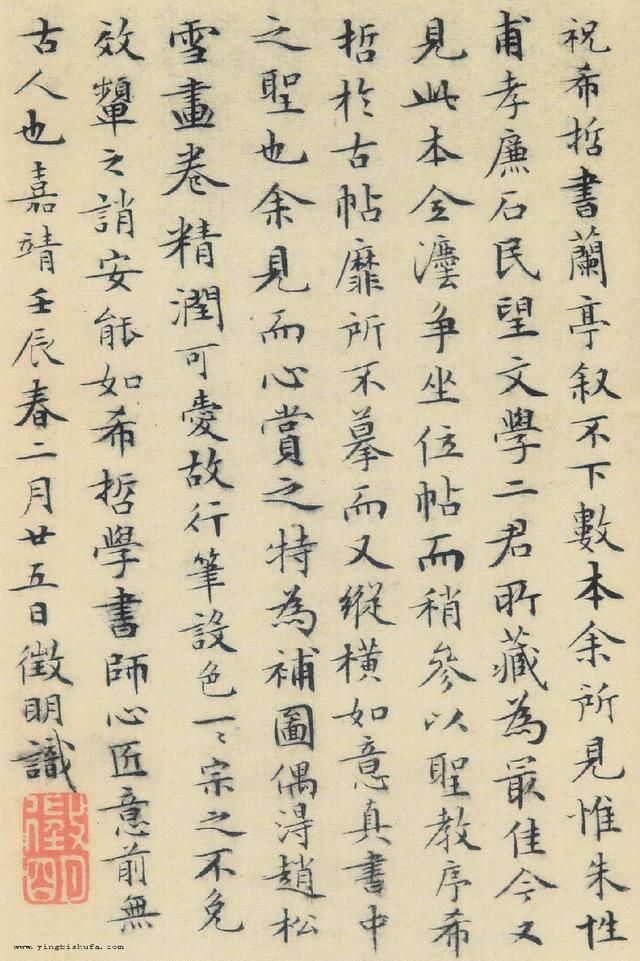 祝希哲書蘭亭叙不下數本余所見惟朱性
甫孝廉石民望文學二君所藏為最佳今又
見此本全灋争坐位帖而稍參以聖教序希
哲於古帖靡所不摹而又縱橫如意真書中
之聖也余見而心賞之特為補圖偶得趙松
雪畫卷精潤可愛故行筆設色一〻宗之不免
效顰之誚安能如希哲學書師心匠意前無
古人也嘉靖壬辰春二月廿五日徵明識
徵明
www.yingbishufa.com